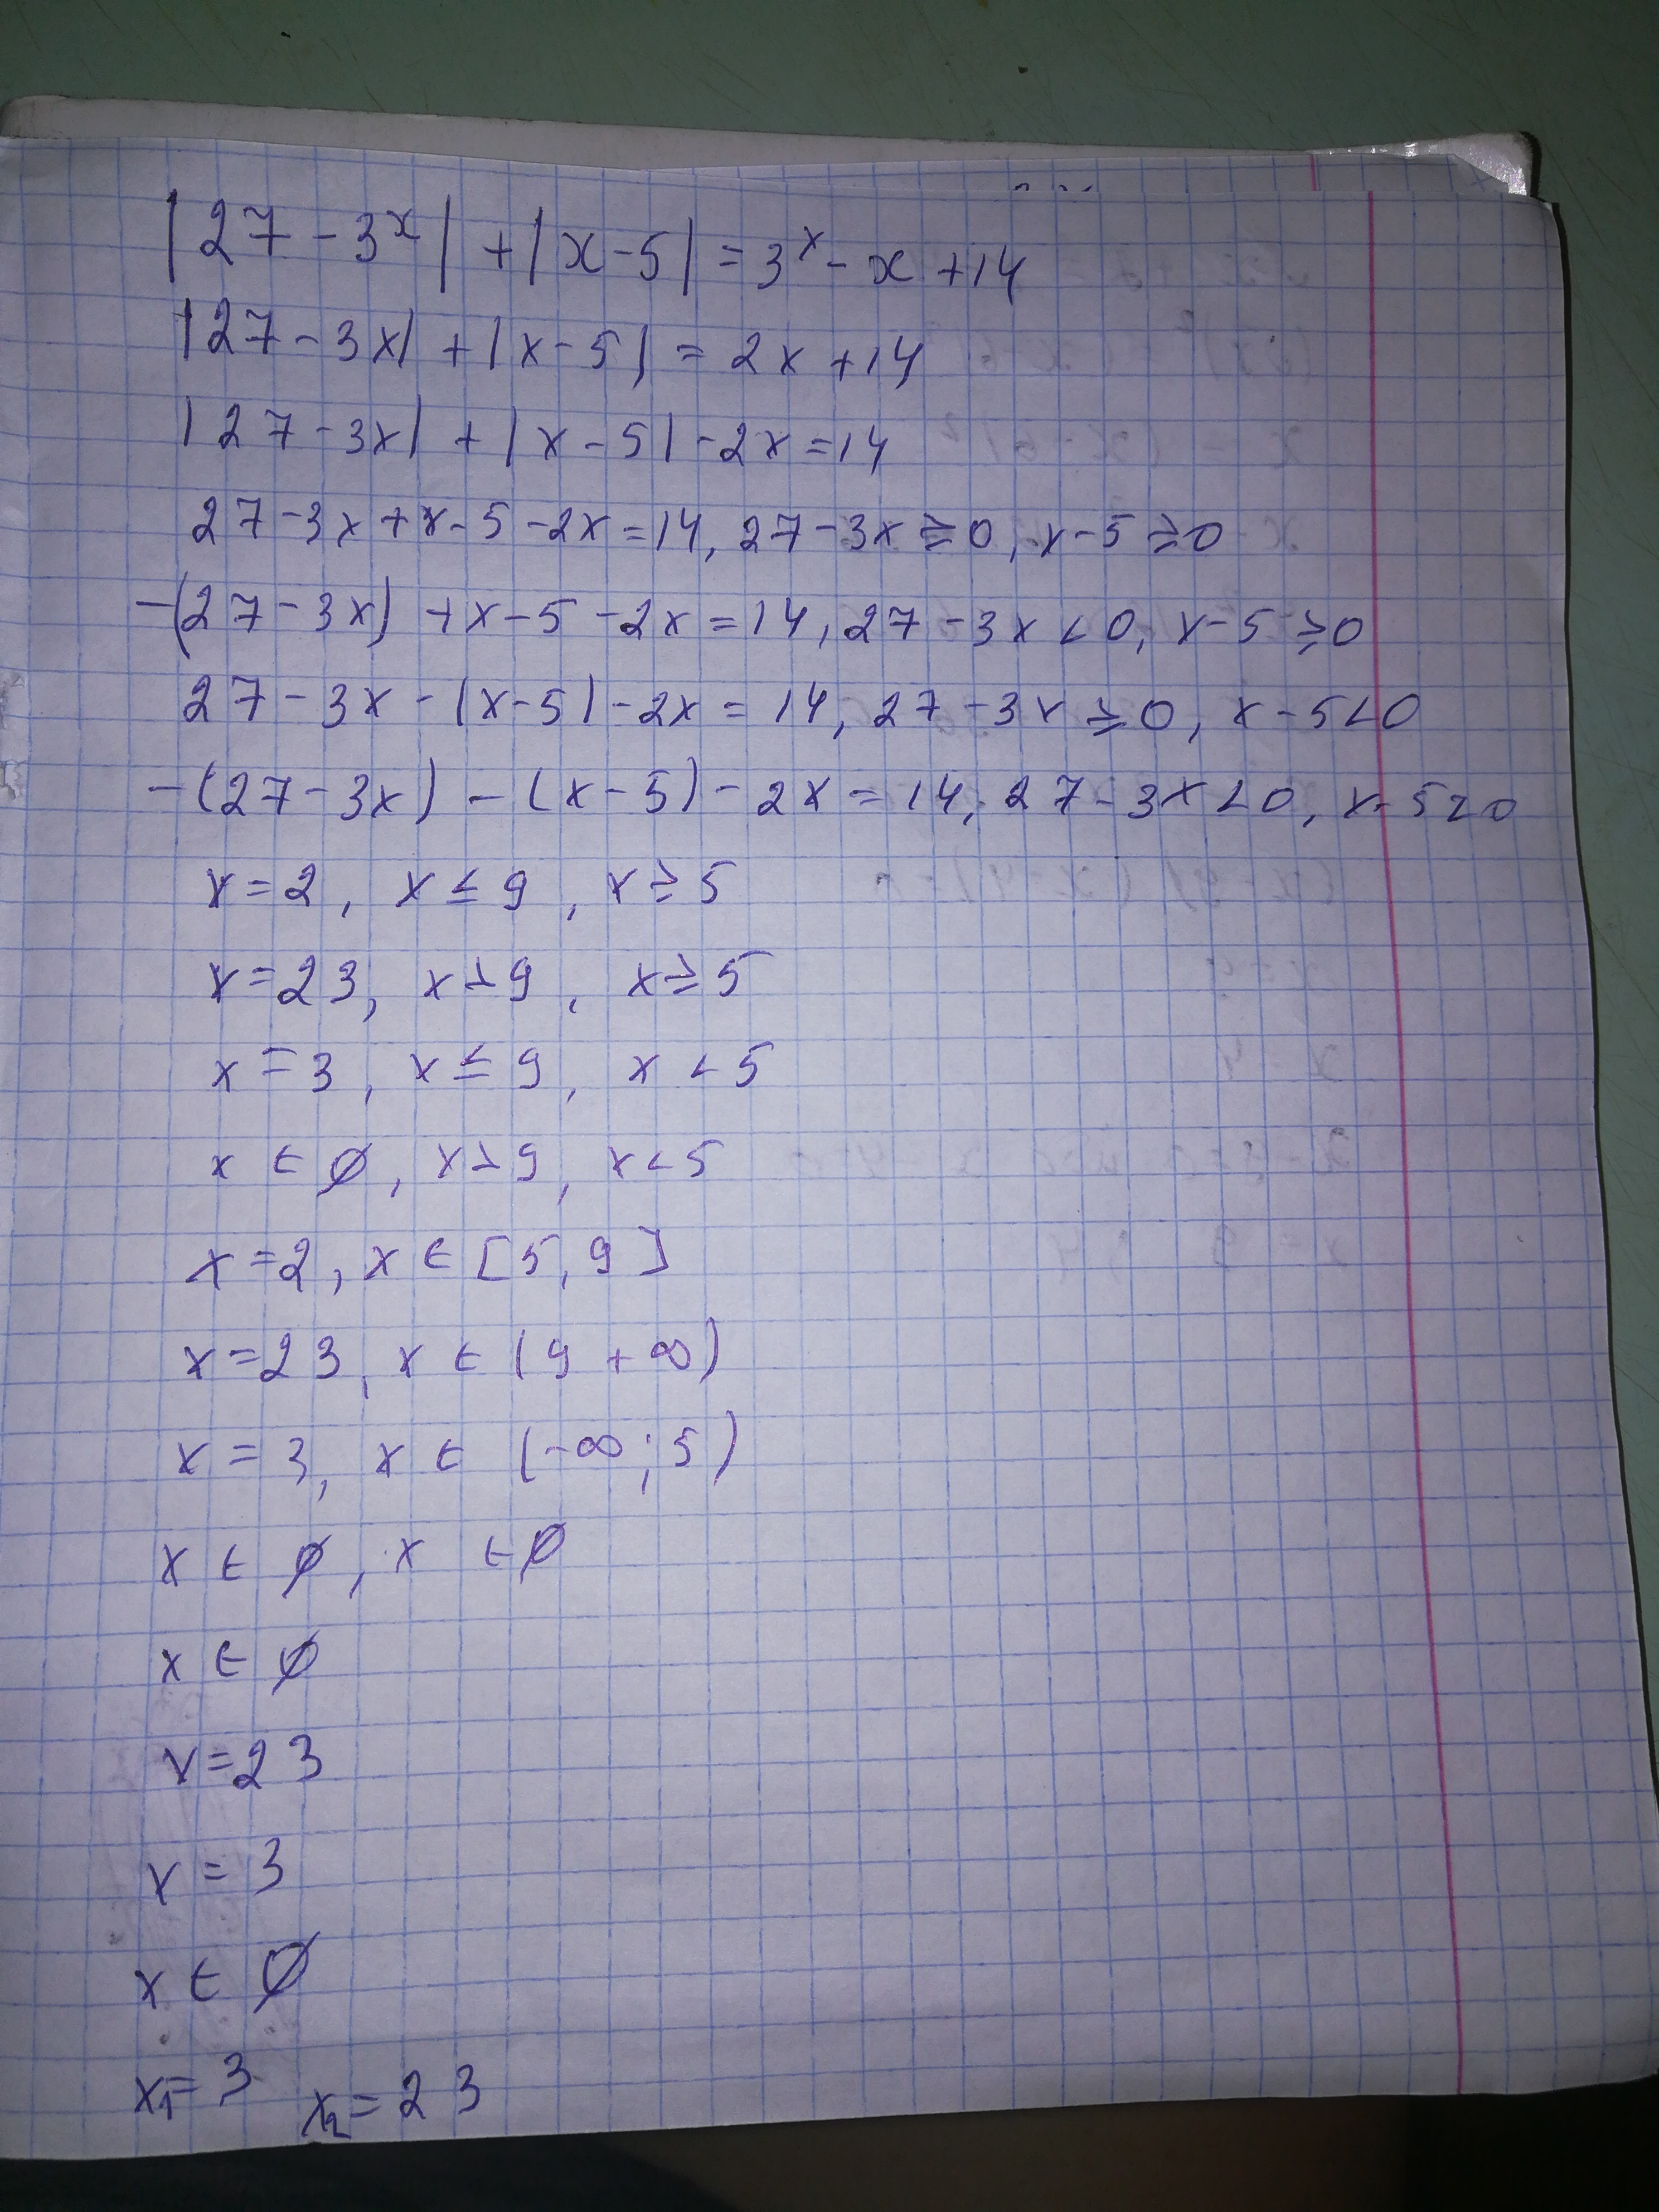 |27 - 3ˣ| + |x - 5| = 3ˣ - x + 14
|27 - 3x| + |x - 5| = 2x + 14
|27 - 3x| + |x - 5| - 2x = 14
27 - 3x + x - 5 - 2x = 14, 27 - 3x ≥ 0, x - 5 ≥ 0
-(27 - 3x) + x - 5 - 2x = 14, 27 - 3x < 0, x - 5 ≥ 0
27 - 3x - (x - 5) - 2x = 14, 27 - 3x ≥ 0, x - 5 < 0
-(27 - 3x) - (x - 5) - 2x = 14, 27 - 3x < 0, x - 5 < 0
x = 2, x ≤ 9, x ≥ 5
x = 23, x > 9, x ≥ 5
x = 3, x ≤ 9, x < 5
x ∈ ∅, x > 9, x < 5
x = 2, x ∈ [5, 9]
x = 23, x ∈ (9 + ∞)
x = 3, x ∈ (-∞; 5)
x ∈ ∅, x ∈ ∅
x ∈ ∅
x = 23
x = 3
x ∈ ∅
x₁ = 3 x₂ = 23